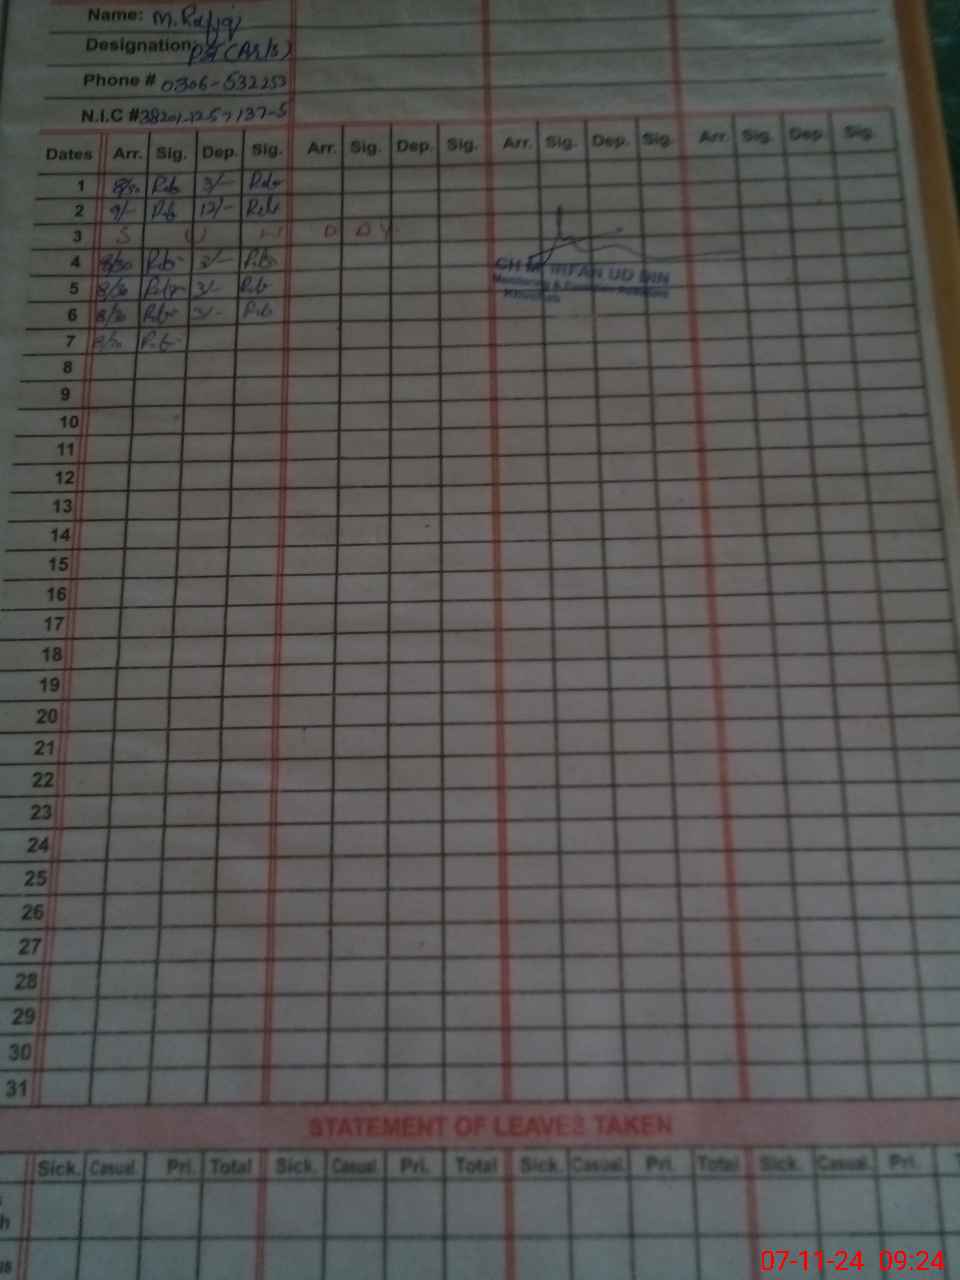 Name: M. Rafiq
Designation: PST (AS/S)
Phone # 0306-532253
N.I.C # 38201-1257137-5
Dates Arr. Sig. Dep. Sig. Arr. Sig. Dep. Sig. Arr. Sig. Dep. Sig. Arr. Sig. Dep. Sig.
1 8/30 3/-
2 9/- 12/-
3 S U N D A Y
4 8/30 3/-
5 8/30 3/-
6 8/30 3/-
7 8/30
CH M IRFAN UD DIN
Monitoring &
Khushab
8
9
10
11
12
13
14
15
16
17
18
19
20
21
22
23
24
25
26
27
28
29
30
31
STATEMENT OF LEAVES TAKEN
Sick. Casual. Pri. Total Sick. Casual. Pri. Total Sick. Casual. Pri. Total Sick. Casual. Pri.
07-11-24 09:24